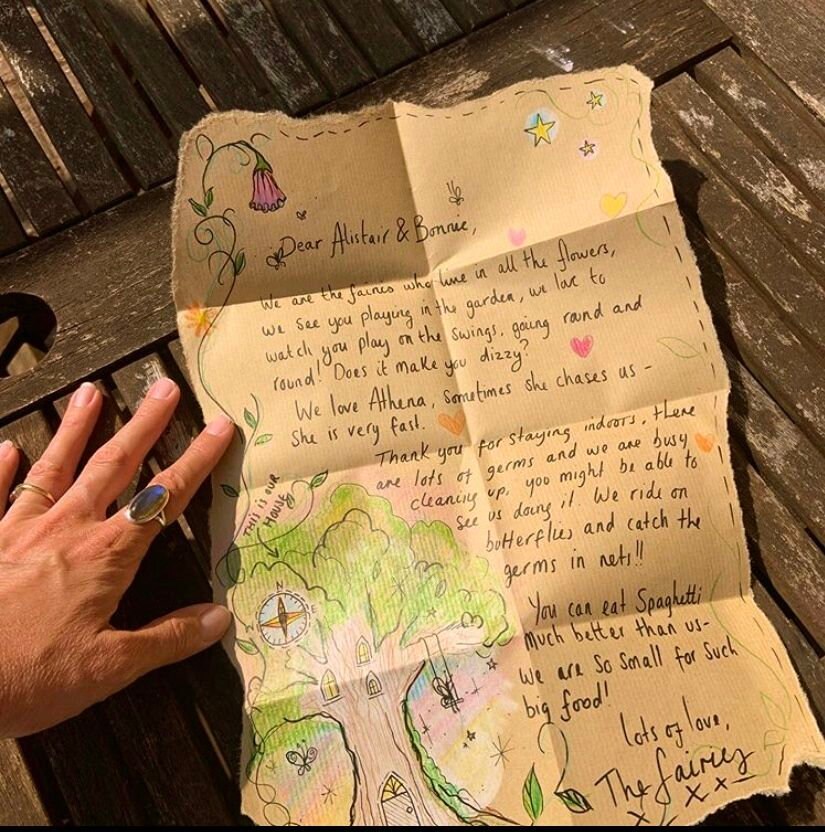 Dear Alistair & Bonnie,
We are the fairies who live in all the flowers,
we see you playing in the garden, we love to
watch you play on the swings, going round and
round! Does it make you dizzy?
We love Athena, sometimes she chases us -
she is very fast.
Thank you for staying indoors, there
are lots of germs and we are busy
cleaning up, you might be able to
see us doing it. We ride on
butterflies and catch the
germs in nets!!
THIS IS OUR
HOUSE
N
You can eat Spaghetti
much better than us-
we are so small for such
big food!
lots of love,
The fairies
x x x